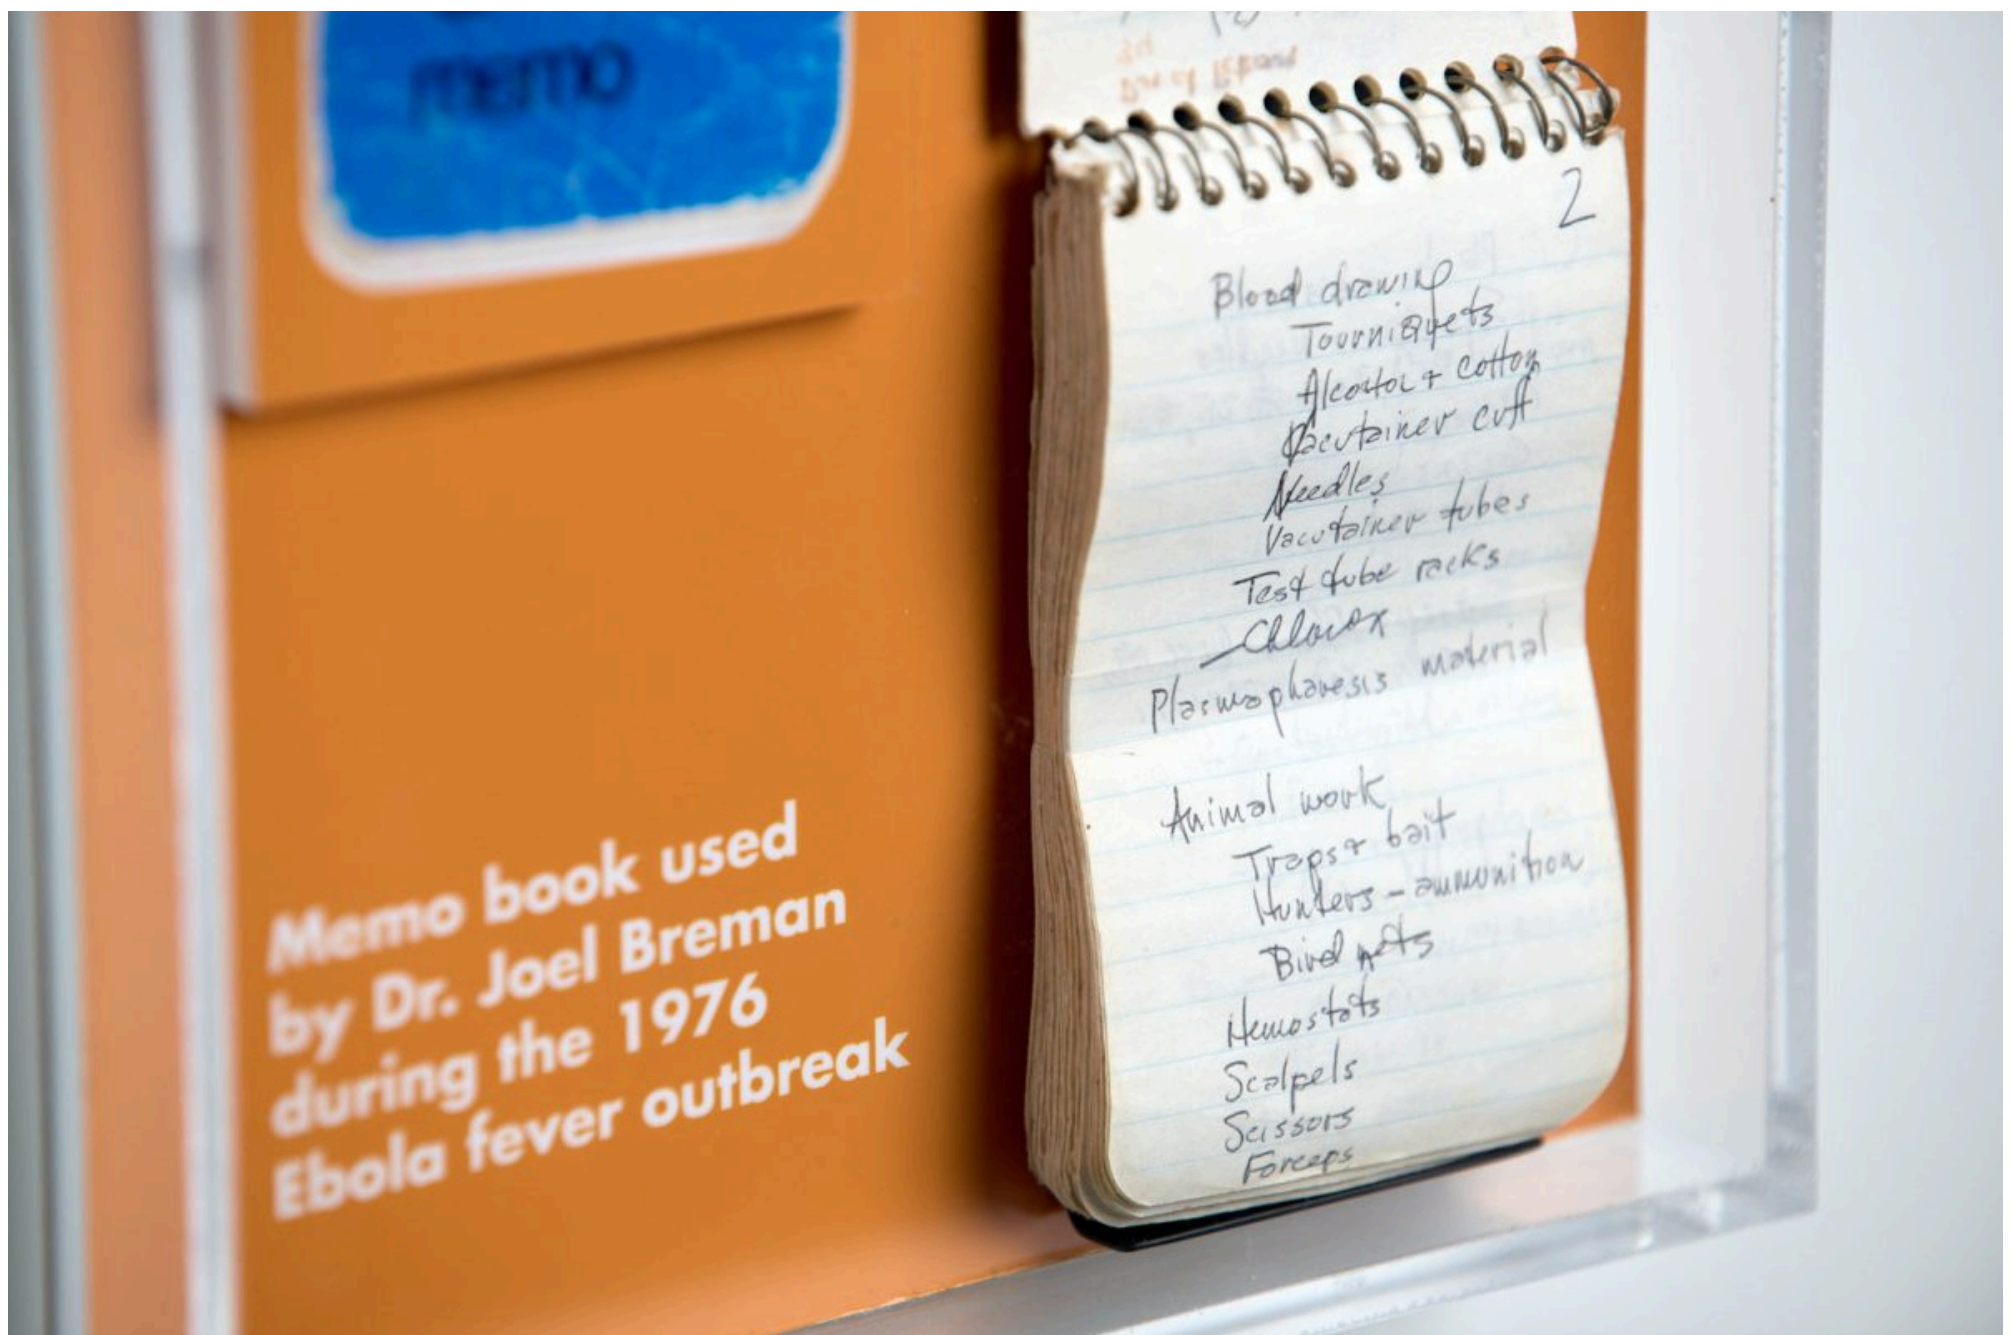 memo
2
Blood drawing
Tourniquets
Alcohol + cotton
Vacutainer cuff
Needles
Vacutainer tubes
Test tube racks
Chlorox
Plasmapharesis material
Animal work
Traps + bait
Hunters - ammunition
Bird nets
Hemostats
Scalpels
Scissors
Forceps
Memo book used
by Dr. Joel Breman
during the 1976
Ebola fever outbreak